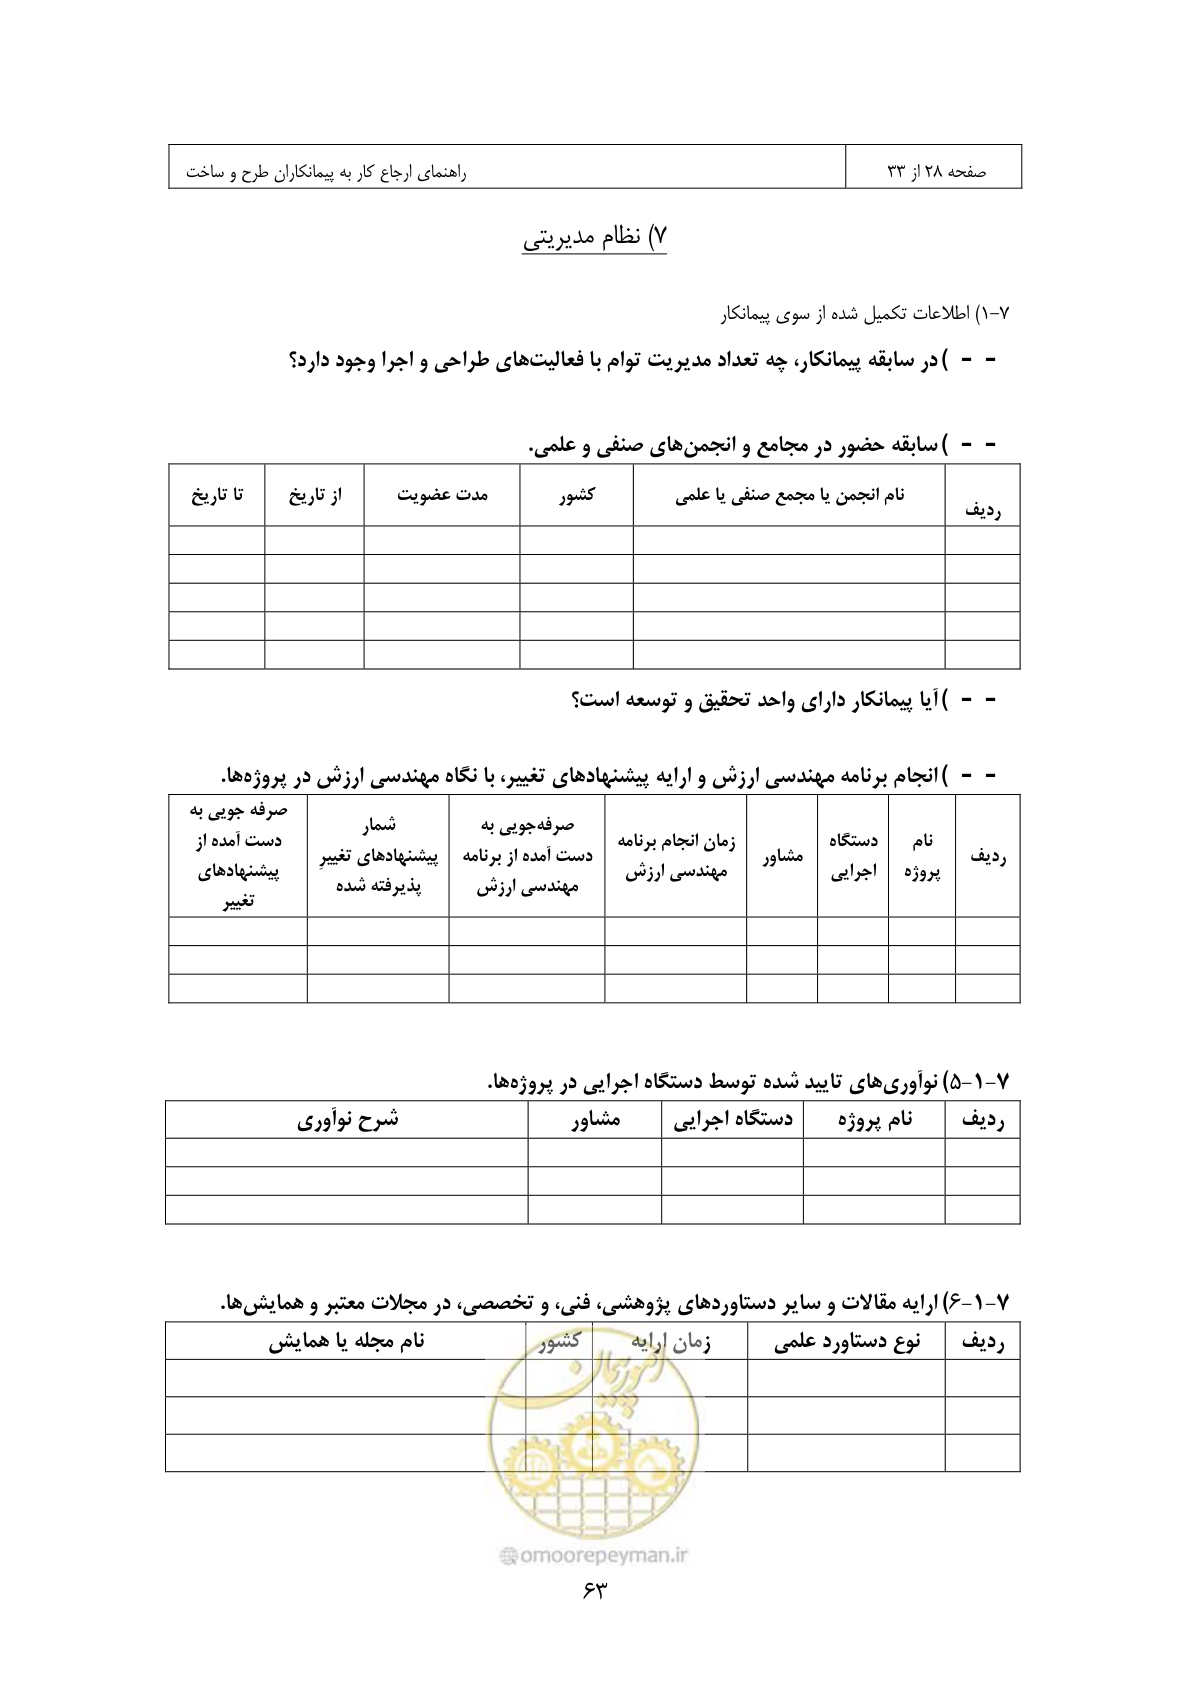 صفحه ۲۸ از ۳۳
راهنمای ارجاع کار به پیمانکاران طرح و ساخت
۷) نظام مدیریتی
۷-۱) اطلاعات تکمیل شده از سوی پیمانکار
- - ) در سابقه پیمانکار، چه تعداد مدیریت توام با فعالیت‌های طراحی و اجرا وجود دارد؟
- - ) سابقه حضور در مجامع و انجمن‌های صنفی و علمی.
ردیف	نام انجمن یا مجمع صنفی یا علمی	کشور	مدت عضویت	از تاریخ	تا تاریخ
- - ) آیا پیمانکار دارای واحد تحقیق و توسعه است؟
- - ) انجام برنامه مهندسی ارزش و ارایه پیشنهادهای تغییر، با نگاه مهندسی ارزش در پروژه‌ها.
ردیف
نام
پروژه
دستگاه
اجرایی
مشاور
زمان انجام برنامه
مهندسی ارزش
صرفه‌جویی به
دست آمده از برنامه
مهندسی ارزش
شمار
پیشنهادهای تغییرِ
پذیرفته شده
صرفه جویی به
دست آمده از
پیشنهادهای
تغییر
۷-۱-۵) نوآوری‌های تایید شده توسط دستگاه اجرایی در پروژه‌ها.
ردیف	نام پروژه	دستگاه اجرایی	مشاور	شرح نوآوری
۷-۱-۶) ارایه مقالات و سایر دستاوردهای پژوهشی، فنی، و تخصصی، در مجلات معتبر و همایش‌ها.
ردیف	نوع دستاورد علمی	زمان ارایه	کشور	نام مجله یا همایش
امور پیمان
@omoorepeyman.ir
۶۳